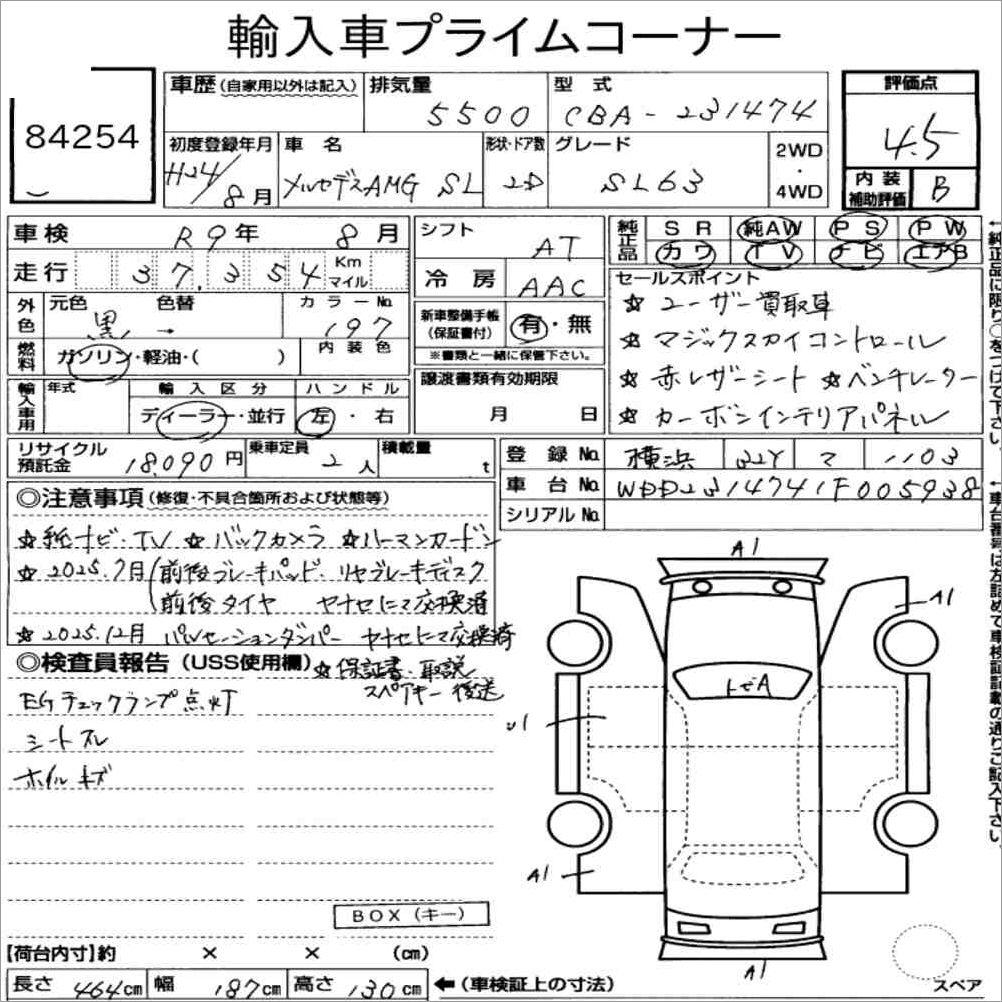 輸入車プライムコーナー
84254
車歴 (自家用以外は記入) 排気量 5500 型式 CBA-231474 評価点 4.5
初度登録年月 H24/8月 車名 メルセデスAMG SL 形状・ドア数 2D グレード SL63 2WD・4WD 内装補助評価 B
車検 R9年 8月 シフト AT
走行 37,354 Km マイル 冷房 AAC
純正品 SR 純AW PS PW
カワ TV ナビ エアB
外色 元色 黒 色替 → カラーNo. 197
燃料 ガソリン・軽油・( ) 内装色
新車整備手帳 (保証書付) 有・無
※書類と一緒に保管下さい。
セールスポイント
☆ ユーザー買取車
☆ マジックスカイコントロール
☆ 赤レザーシート ☆ベンチレーター
☆ カーボンインテリアパネル
輸入車用 年式 輸入区分 ディーラー・並行 ハンドル 左・右
譲渡書類有効期限 月 日
リサイクル預託金 18,090円 乗車定員 2人 積載量 t
登録No. 横浜 マ 1103
車台No. WDD2314741F005938
シリアルNo.
◎注意事項 (修復・不具合箇所および状態等)
☆ 純ナビ・TV ☆ バックカメラ ☆ハーマンカードン
☆ 2025.7月 (前後ブレーキパッド・リヤブレーキディスク
前後タイヤ ヤナセにて交換済
☆ 2025.12月 パルセーションダンパー ヤナセにて交換済
◎検査員報告 (USS使用欄) ☆保証書・取説
スペアキー 後送
EGチェックランプ点灯
シートスレ
ホイルキズ
A1
A1
トビA
U1
A1
A1
BOX (キー)
スペア
【荷台内寸】約 × × (cm)
長さ 464cm 幅 187cm 高さ 130cm ←(車検証上の寸法)
←純正品に限り○をつけて下さい。
←車台番号は左詰めて車検証記載の通りご記入下さい。